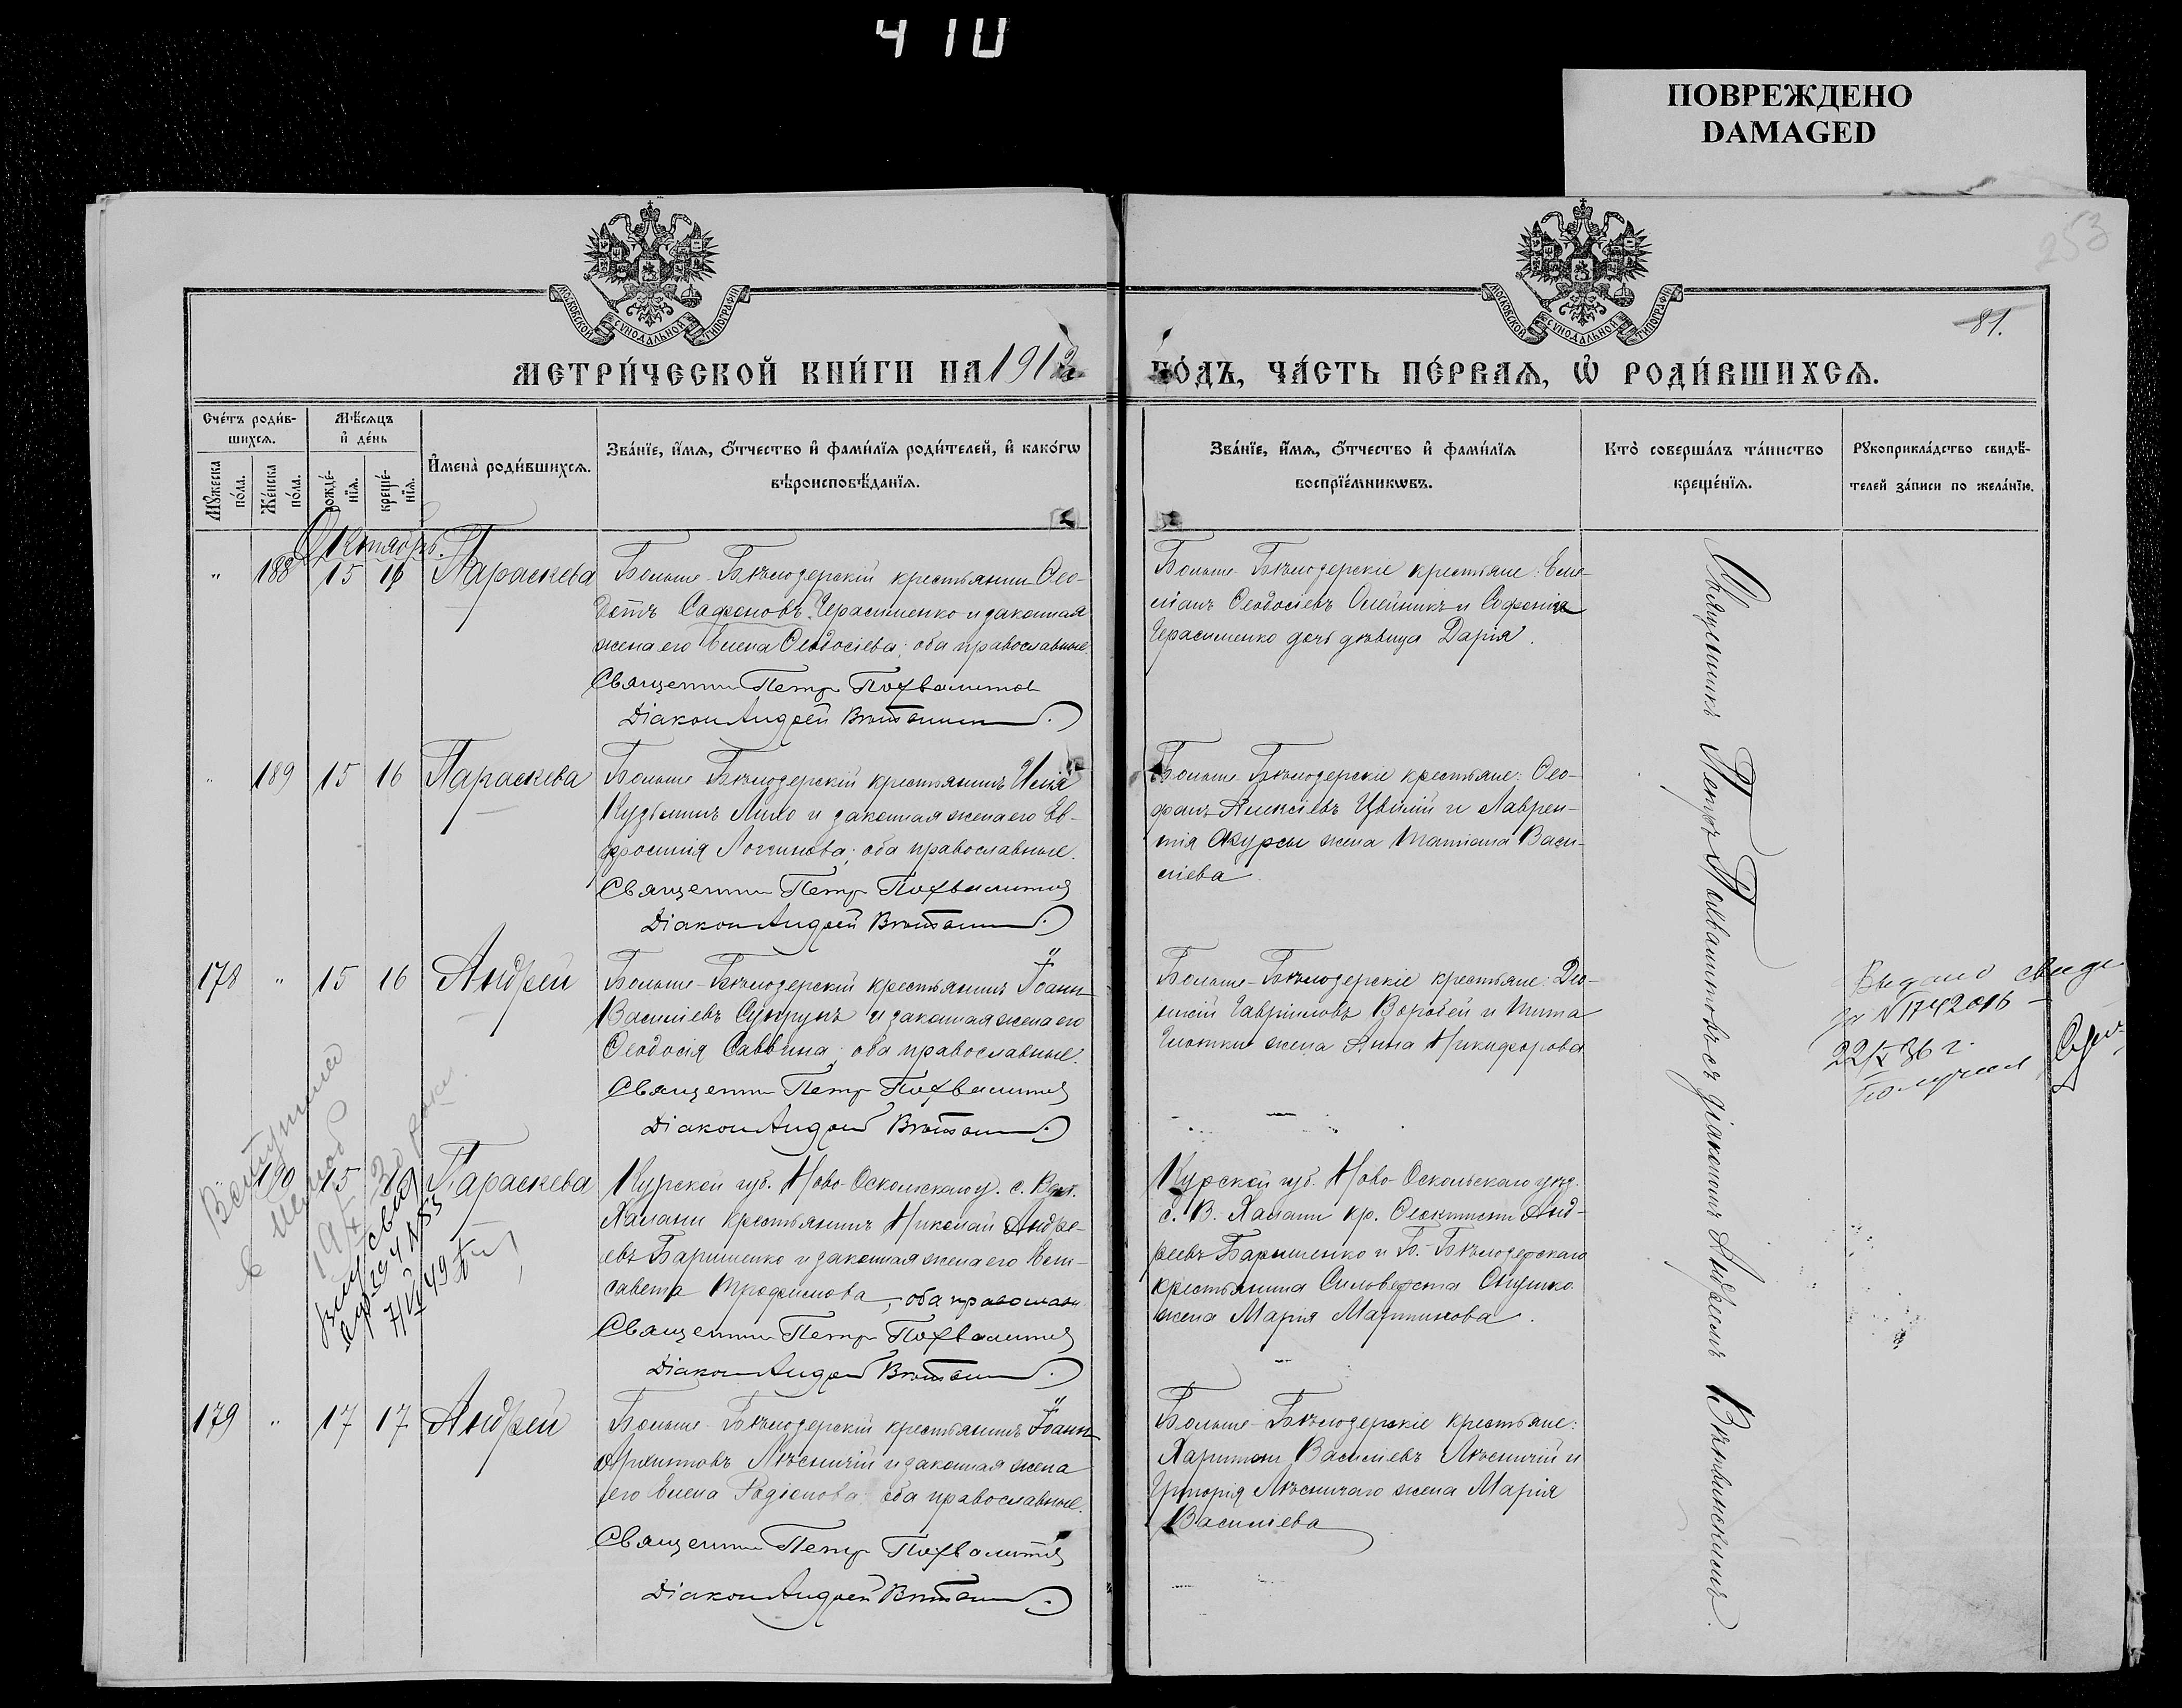 410
ПОВРЕЖДЕНО
DAMAGED
253
81.
МОСКОВСКОЙ СѴНОДАЛЬНОЙ ТИПОГРАФІИ
МОСКОВСКОЙ СѴНОДАЛЬНОЙ ТИПОГРАФІИ
МЕТРИ́ЧЕСКОЙ КНИ́ГИ НА 1912 ГО́ДЪ, ЧА́СТЬ ПЕ́РВАѦ, Ѡ҆ РОДИ́ВШИХСѦ.
Сче́тъ роди́в-
шихсѧ.
Мѣ́сѧцъ
и҆ де́нь
И҆мена̀ роди́вшихсѧ.
Зва́нїе, и҆́мѧ, ѻ҆́тчество и҆ фами́лїѧ роди́телей, и҆ како́гѡ
вѣроисповѣ́данїѧ.
Мꙋ́жеска
по́ла.
Же́нска
по́ла.
рожде́-
нїѧ.
креще́-
нїѧ.
Зва́нїе, и҆́мѧ, ѻ҆́тчество и҆ фами́лїѧ
воспрїе́мникѡвъ.
Кто̀ соверша́лъ та́инство
креще́нїѧ.
Рꙋкоприкла́дство свидѣ́-
телей за́писи по жела́нїю.
Октябрь.
" 188 15 16 Параскева
Больше-Бѣлозерскій крестьянинъ Ѳео-
дотъ Сафоновъ Герасименко и законная
жена его Елена Ѳеодосіева; оба православные
Священникъ Петръ Похвалитовъ
Діаконъ Андрей
Больше-Бѣлозерскіе крестьяне: Еме-
ліанъ Ѳеодосіевъ Олейникъ и Софонія
Герасименко дочь дѣвица Дарія.
" 189 15 16 Параскева
Больше Бѣлозерскій крестьянинъ Илія
Кузьминъ Лихо и законная жена его Ев-
фросинія Логгинова; оба православные.
Священникъ Петръ Похвалитовъ
Діаконъ Андрей
Больше Бѣлозерскіе крестьяне: Ѳео-
фанъ Алексіевъ Цвилій и Лаврен-
тія жена Татіана Васи-
ліева
178 " 15 16 Андрей
Больше-Бѣлозерскій крестьянинъ Іоаннъ
Василіевъ Супрунъ и законная жена его
Ѳеодосія Саввина; оба православные.
Священникъ Петръ Похвалитовъ
Діаконъ Андрей
Больше-Бѣлозерскіе крестьяне: Діо-
нисій Гавриловъ Воробей и Тита
жена Анна Никифорова
Выдано свиде
за N 1742016
22/X 36 г.
Получил
190 15 Параскева
Курской губ. Ново-Оскольскаго у. с.
Халани крестьянинъ Николай Андре-
евъ Баришенко и законная жена его Ели-
савета Трофимова, оба православн
Священникъ Петръ Похвалитовъ
Діаконъ Андрей
Курской губ. Ново-Оскольскаго уѣз.
с. В. Халани кр. Ѳеоктистъ Анд-
реевъ Баришенко и Б.-Бѣлозерскаго
крестьянина Силовестра
жена Марія Мартинова.
179 " 17 17 Андрей
Больше-Бѣлозерскій крестьянинъ Іоаннъ
Архиповъ Лѣсничій и законная жена
его Елена Родіонова; оба православные.
Священникъ Петръ Похвалитовъ
Діаконъ Андрей
Больше-Бѣлозерскіе крестьяне:
Харитонъ Василіевъ Лѣсничій и
Григорія Лѣсничаго жена Марія
Василіева
Священникъ Петръ Похвалитовъ съ діакономъ Андреемъ